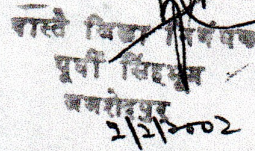 वास्ते जिला नियंत्रक
पूर्वी सिंहभूम
जमशेदपुर
2/2/2002